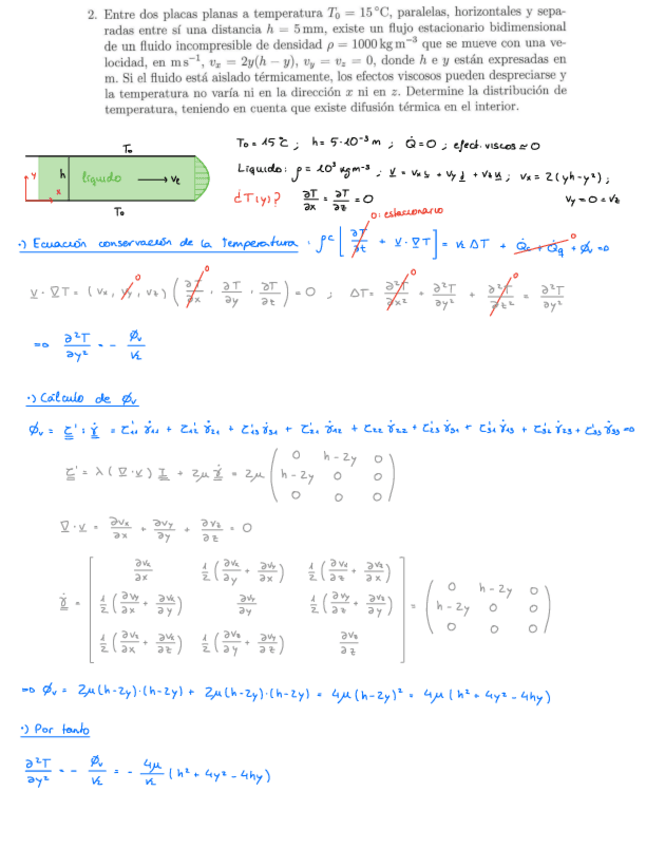 2. Entre dos placas planas a temperatura T₀ = 15 °C, paralelas, horizontales y sepa-
radas entre sí una distancia h = 5 mm, existe un flujo estacionario bidimensional
de un fluido incompresible de densidad ρ = 1000 kg m⁻³ que se mueve con una ve-
locidad, en m s⁻¹, vₓ = 2y(h − y), v_y = v_z = 0, donde h e y están expresadas en
m. Si el fluido está aislado térmicamente, los efectos viscosos pueden despreciarse y
la temperatura no varía ni en la dirección x ni en z. Determine la distribución de
temperatura, teniendo en cuenta que existe difusión térmica en el interior.
T₀
T₀ = 15 °C ; h = 5·10⁻³ m ; Q̇ = 0 ; efect. viscos ≃ 0
y h líquido → v_z
x
Líquido: ρ = 10³ kg m⁻³ ; v = vₓ i + v_y j + v_z k ; vₓ = 2(yh-y²) ;
T₀
¿T(y)? ∂T/∂x = ∂T/∂z = 0 v_y = 0 = v_z
0: estacionario
·) Ecuación conservación de la temperatura : ρc [ ∂T/∂t + v · ∇T ] = κ ΔT + Q̇c + Q̇q + ϕv => 0
v · ∇T = (vₓ, v_y, v_z) ( ∂T/∂x , ∂T/∂y , ∂T/∂z ) = 0 ; ΔT = ∂²T/∂x² + ∂²T/∂y² + ∂²T/∂z² = ∂²T/∂y²
=> ∂²T/∂y² = - ϕv/κ
·) Cálculo de ϕv
ϕv = τ' : γ̇ = τ'₁₁ γ̇₁₁ + τ'₁₂ γ̇₂₁ + τ'₁₃ γ̇₃₁ + τ'₂₁ γ̇₁₂ + τ'₂₂ γ̇₂₂ + τ'₂₃ γ̇₃₁ + τ'₃₁ γ̇₁₃ + τ'₃₂ γ̇₂₃ + τ'₃₃ γ̇₃₃ =>
τ' = λ(∇·v) I + 2μ γ̇ = 2μ ( 0 h-2y 0
h-2y 0 0
0 0 0 )
∇·v = ∂vₓ/∂x + ∂v_y/∂y + ∂v_z/∂z = 0
γ̇ = [ ∂vₓ/∂x 1/2(∂vₓ/∂y + ∂v_y/∂x) 1/2(∂vₓ/∂z + ∂v_z/∂x) ] = ( 0 h-2y 0
1/2(∂v_y/∂x + ∂vₓ/∂y) ∂v_y/∂y 1/2(∂v_y/∂z + ∂v_z/∂y) h-2y 0 0
1/2(∂v_z/∂x + ∂vₓ/∂z) 1/2(∂v_z/∂y + ∂v_y/∂z) ∂v_z/∂z 0 0 0 )
=> ϕv = 2μ(h-2y)·(h-2y) + 2μ(h-2y)·(h-2y) = 4μ(h-2y)² = 4μ(h² + 4y² - 4hy)
·) Por tanto
∂²T/∂y² = - ϕv/κ = - 4μ/κ (h² + 4y² - 4hy)